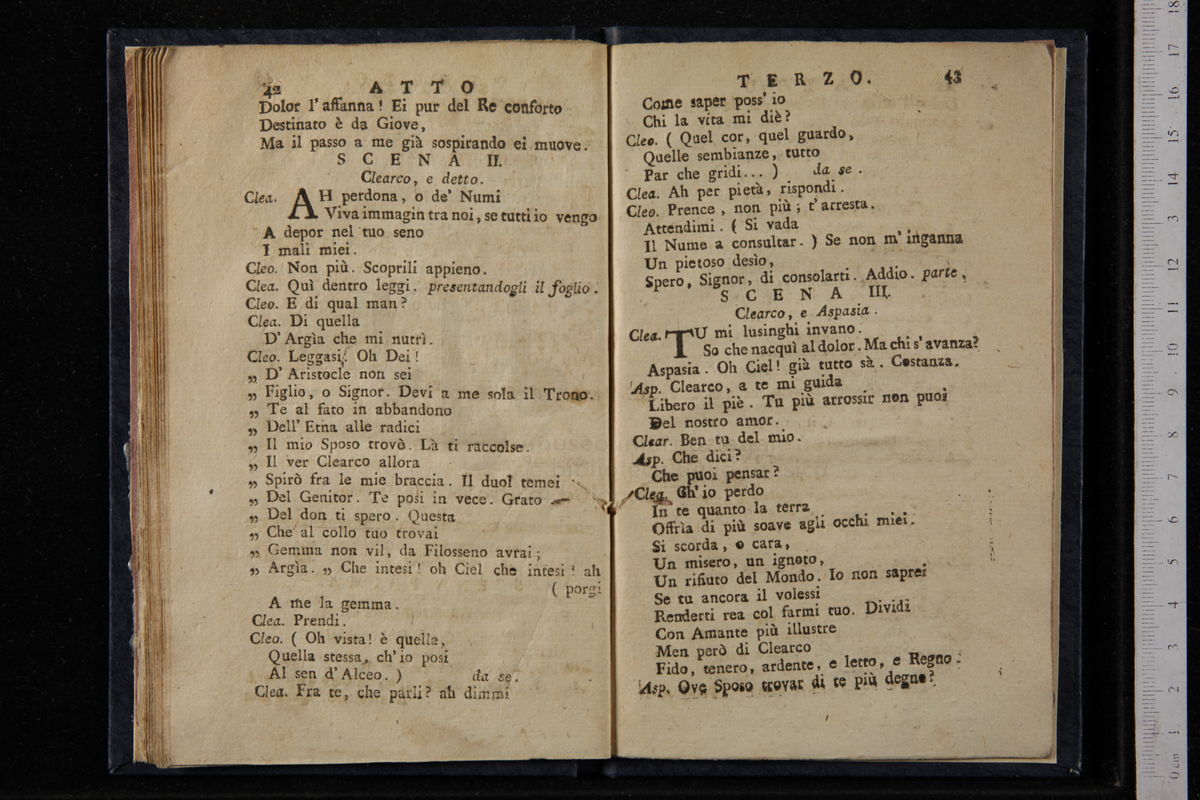 42 ATTO
Dolor l'affanna! Ei pur del Re conforto
Destinato è da Giove,
Ma il passo a me già sospirando ei muove.
SCENA II.
Clearco, e detto.
Clea. AH perdona, o de' Numi
Viva immagin tra noi, se tutti io vengo
A depor nel tuo seno
I mali miei.
Cleo. Non più. Scoprili appieno.
Clea. Quì dentro leggi. presentandogli il foglio.
Cleo. E di qual man?
Clea. Di quella
D' Argìa che mi nutrì.
Cleo. Leggasi. Oh Dei!
„ D' Aristocle non sei
„ Figlio, o Signor. Devi a me sola il Trono.
„ Te al fato in abbandono
„ Dell' Etna alle radici
„ Il mio Sposo trovò. Là ti raccolse.
„ Il ver Clearco allora
„ Spirò fra le mie braccia. Il duol temei
„ Del Genitor. Te posi in vece. Grato
„ Del don ti spero. Questa
„ Che al collo tuo trovai
„ Gemma non vil, da Filosseno avrai;
„ Argìa. „ Che intesi! oh Ciel che intesi! ah
( porgi
A me la gemma.
Clea. Prendi.
Cleo. ( Oh vista! è quella,
Quella stessa, ch' io posi
Al sen d' Alceo. ) da se.
Clea. Fra te, che parli? ah dimmi
TERZO. 43
Come saper poss' io
Chi la vita mi diè?
Cleo. ( Quel cor, quel guardo,
Quelle sembianze, tutto
Par che gridi... ) da se.
Clea. Ah per pietà, rispondi.
Cleo. Prence, non più; t' arresta.
Attendimi. ( Si vada
Il Nume a consultar. ) Se non m' inganna
Un pietoso desìo,
Spero, Signor, di consolarti. Addio. parte.
SCENA III.
Clearco, e Aspasia.
Clea. TU mi lusinghi invano.
So che nacquì al dolor. Ma chi s' avanza?
Aspasia. Oh Ciel! già tutto sà. Costanza.
Asp. Clearco, a te mi guida
Libero il piè. Tu più arrossir non puoi
Del nostro amor.
Clear. Ben tu del mio.
Asp. Che dici?
Che puoi pensar?
Clea. Ch' io perdo
In te quanto la terra
Offrìa di più soave agli occhi miei.
Si scorda, o cara,
Un misero, un ignoto,
Un rifiuto del Mondo. Io non saprei
Se tu ancora il volessi
Renderti rea col farmi tuo. Dividi
Con Amante più illustre
Men però di Clearco
Fido, tenero, ardente, e letto, e Regno.
Asp. Ove Sposo trovar di te più degno?
18
17
16
15
14
13
12
11
10
9
8
7
6
5
4
3
2
1
0 cm